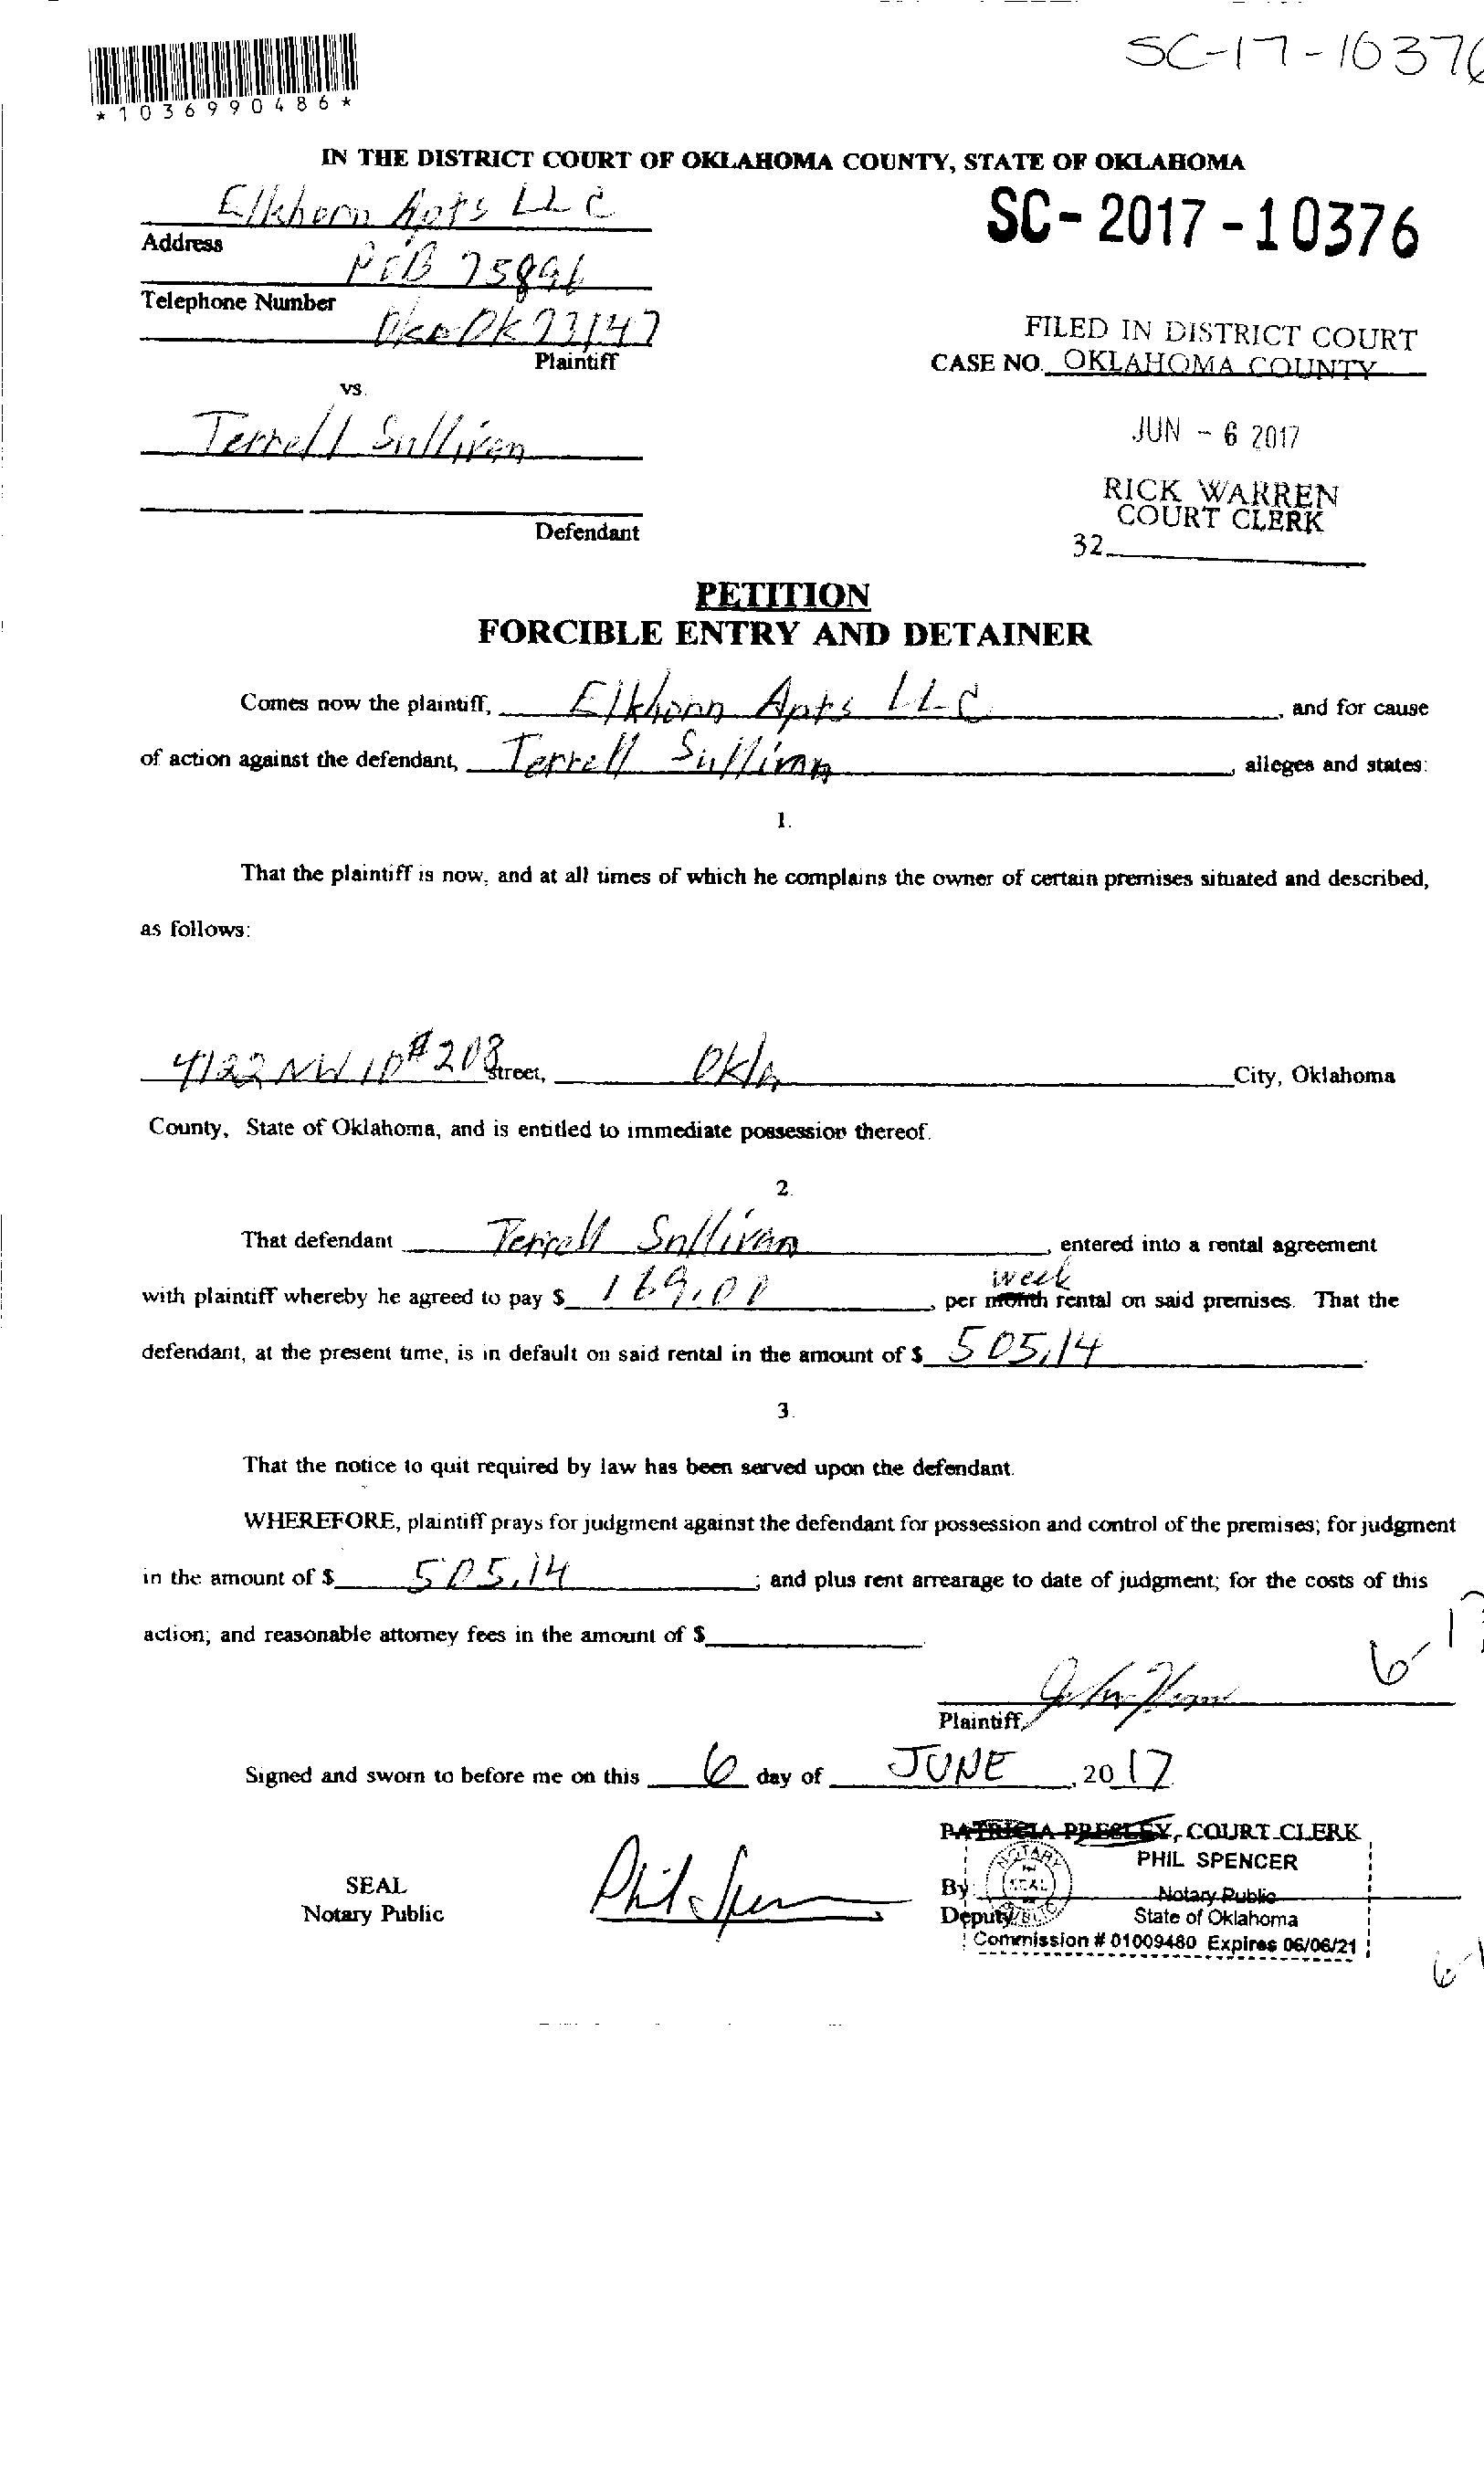 SC-17-10376
*1036990486*
IN THE DISTRICT COURT OF OKLAHOMA COUNTY, STATE OF OKLAHOMA
Elkhorn Apts LLC
SC-2017-10376
Address
POB 75896
Telephone Number
OKC OK 73147
FILED IN DISTRICT COURT
Plaintiff
CASE NO. OKLAHOMA COUNTY
vs.
Terrell Sullivan
JUN - 6 2017
RICK WARREN
COURT CLERK
Defendant
32
PETITION
FORCIBLE ENTRY AND DETAINER
Comes now the plaintiff, Elkhorn Apts LLC, and for cause
of action against the defendant, Terrell Sullivan, alleges and states:
1.
That the plaintiff is now, and at all times of which he complains the owner of certain premises situated and described,
as follows:
4122 NW 10 #208 Street, Okla City, Oklahoma
County, State of Oklahoma, and is entitled to immediate possession thereof.
2.
That defendant Terrell Sullivan, entered into a rental agreement
week
with plaintiff whereby he agreed to pay $ 169.00, per month rental on said premises. That the
defendant, at the present time, is in default on said rental in the amount of $ 505.14.
3.
That the notice to quit required by law has been served upon the defendant.
WHEREFORE, plaintiff prays for judgment against the defendant for possession and control of the premises; for judgment
in the amount of $ 505.14; and plus rent arrearage to date of judgment; for the costs of this
action; and reasonable attorney fees in the amount of $.
Plaintiff,
Signed and sworn to before me on this 6 day of JUNE, 2017.
PATRICIA PRESLEY, COURT CLERK
PHIL SPENCER
SEAL
Phil Spen
By
NOTARY
SEAL
Notary Public
Notary Public
Deputy
State of Oklahoma
Commission # 01009480 Expires 06/06/21